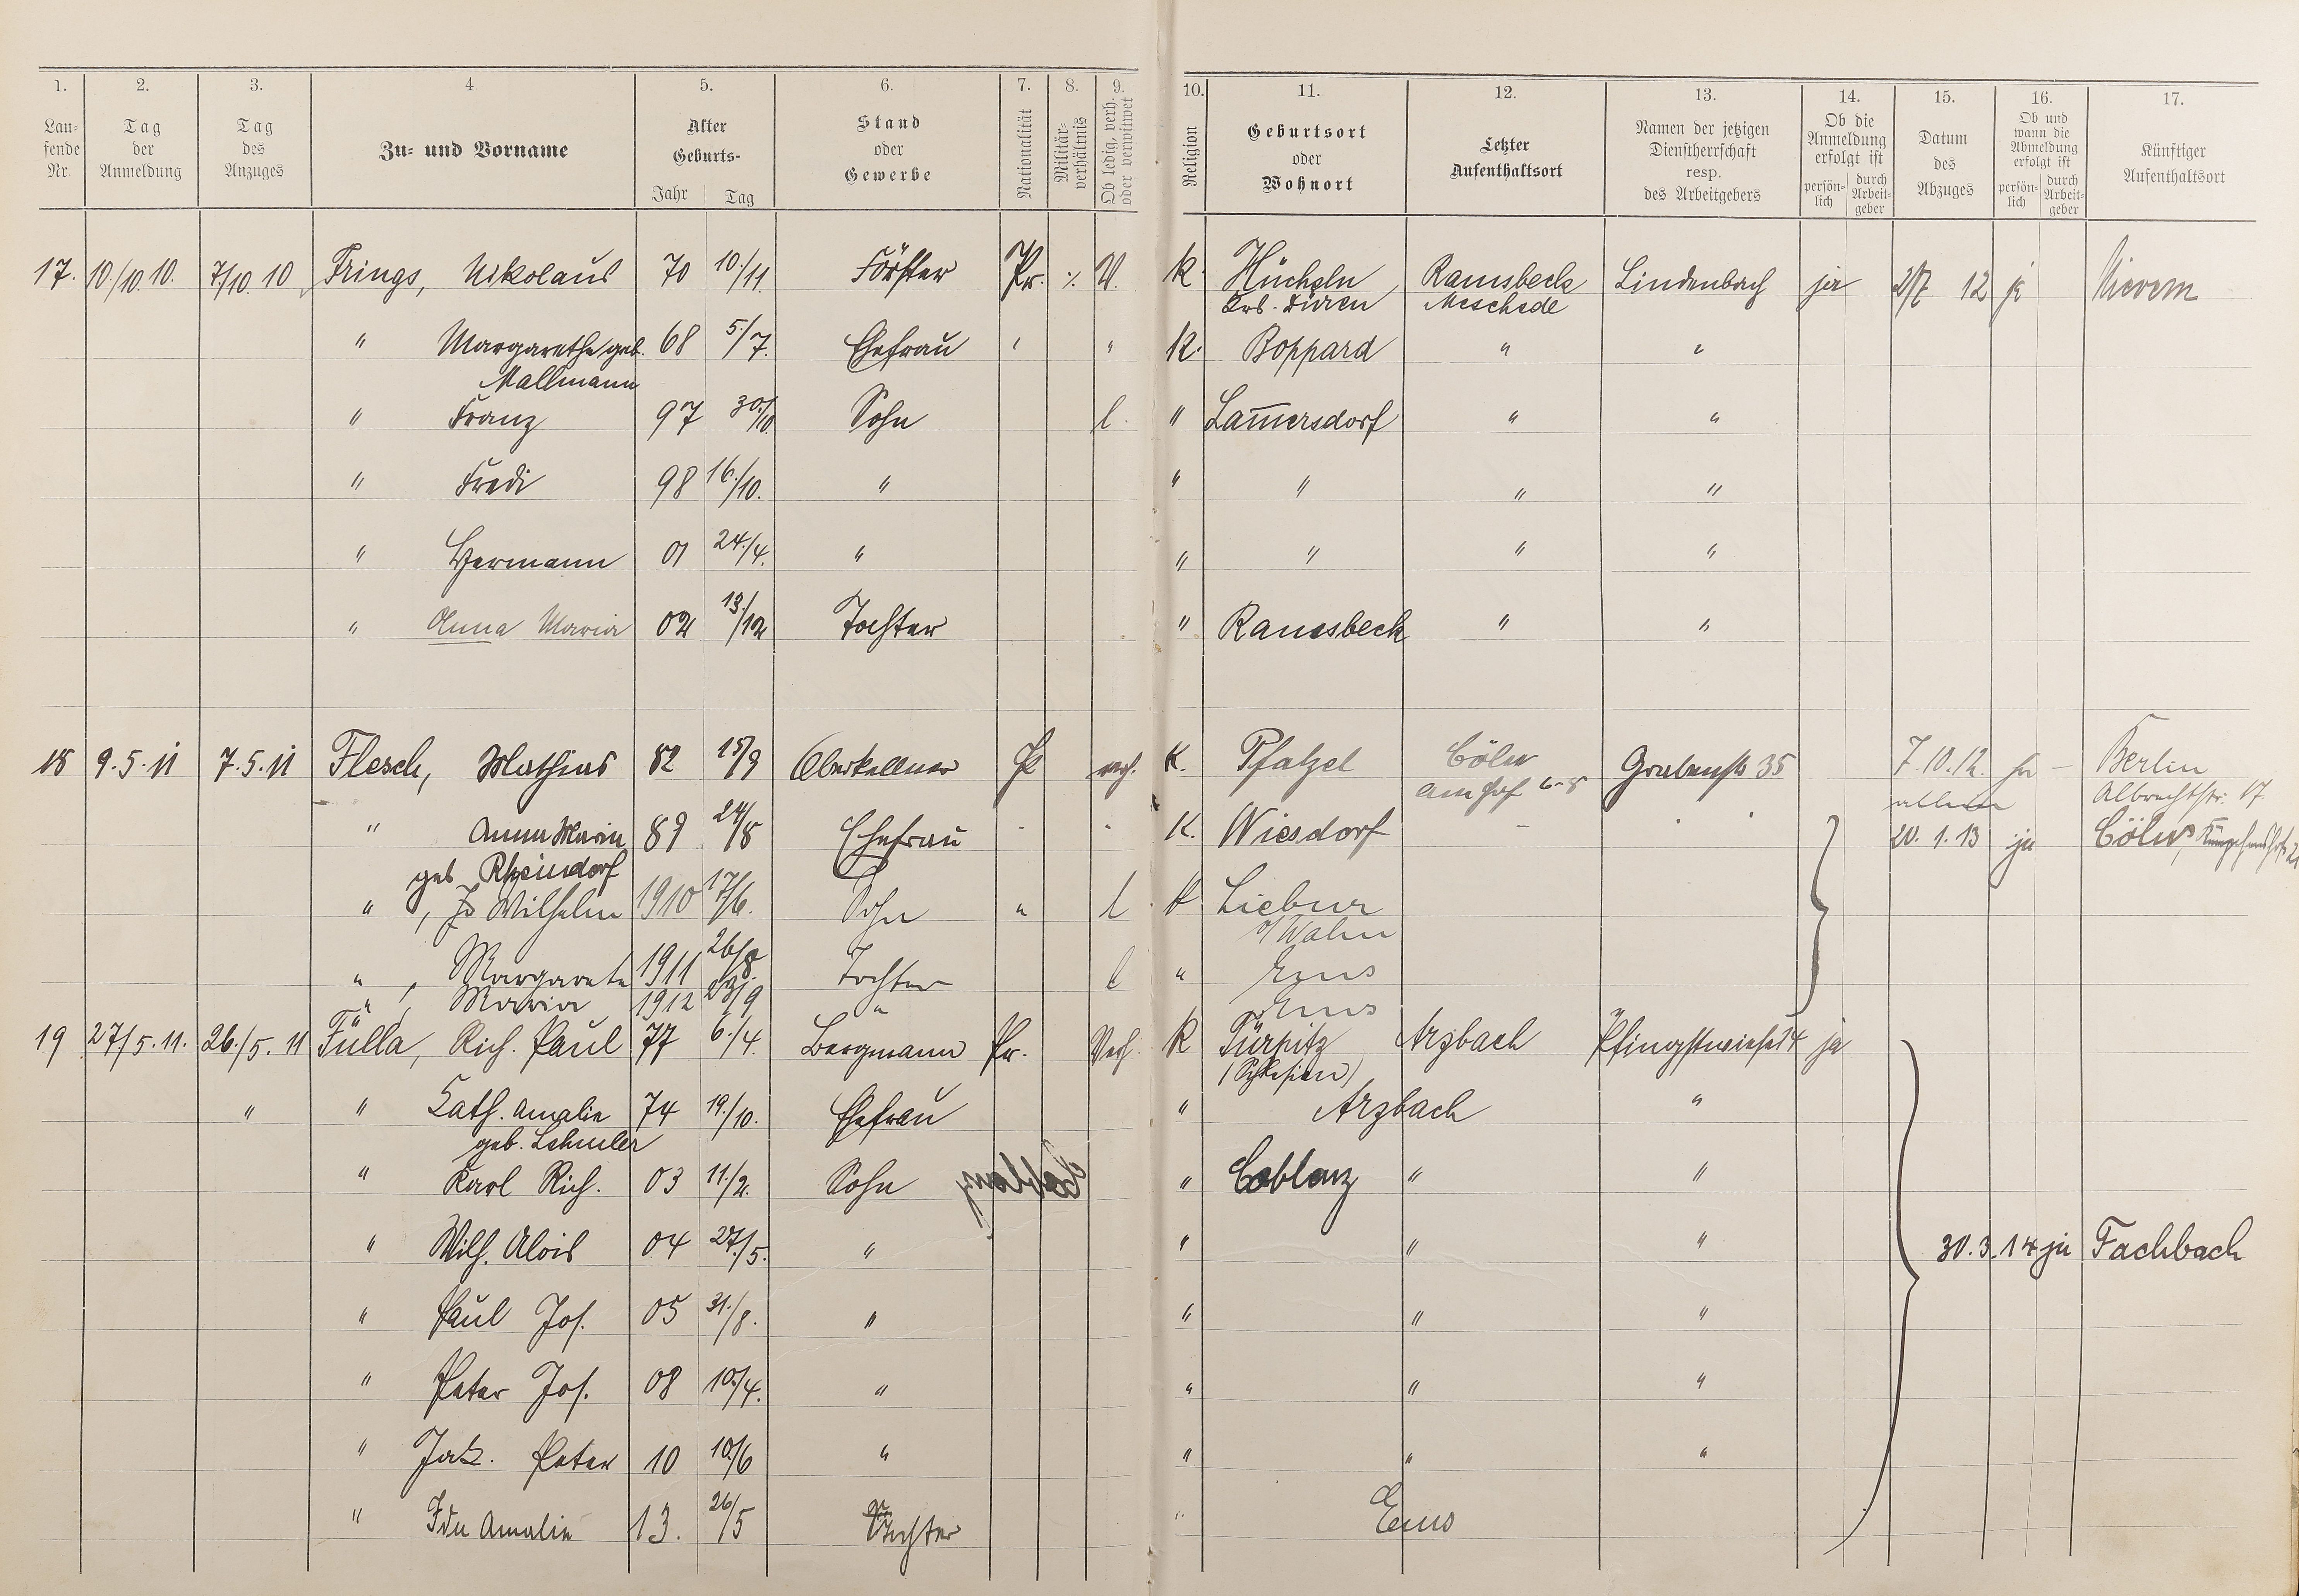 1. 2. 3. 4. 5. 6. 7. 8. 9. 10. 11. 12. 13. 14. 15. 16. 17.
Lau-
fende
Nr.
Tag
der
Anmeldung
Tag
des
Anzuges
Zu- und Vorname
Alter
Geburts-
Jahr Tag
Stand
oder
Gewerbe
Nationalität
Militär-
verhältnis
Ob ledig, verh.
oder verwitwet
Religion
Geburtsort
oder
Wohnort
Letzter
Aufenthaltsort
Namen der jetzigen
Dienstherrschaft
resp.
des Arbeitgebers
Ob die
Anmeldung
erfolgt ist
persön-
lich
durch
Arbeit-
geber
Datum
des
Abzuges
Ob und
wann die
Abmeldung
erfolgt ist
persön-
lich
durch
Arbeit-
geber
Künftiger
Aufenthaltsort
17. 10./10.10. 7/10.10 Frings, Nikolaus 70 10./11. Förster Pr. ./. V. K. Hücheln Ramsbeck Lindenbach ja 2/7 12 ja Nievern
Krs. Düren Meschede
" Margarethe geb. 68 5./7. Ehefrau " " K. Boppard " "
Mallmann
" Franz 97 30./10. Sohn l. " Lam̄ersdorf " "
" Fredi 98 16./10. " " " " "
" Hermann 01 24./4. " " " " "
" Anna Maria 02 13./12 Tochter " Ramsbeck " "
18 9.5.11 7.5.11 Flesch, Mathias 82 15/9 Oberkellner verh. K. Pfalzel Cöln Grabenstr 35 7.10.12. ja – Berlin
am Hof 6-8 allein Albrechtstr. 17
" Anna Maria 89 24/8 Ehefrau " " K. Wiesdorf – " " 20.1.13 ja Cöln,
geb Rheindorf
" , Wilhelm 1910 17/6. Sohn " l K Liebur
b/ Wahn
" , Margareta 1911 26/8. Tochter l " Ems
" , Maria 1912 23/9 " Ems
19 27/5.11. 26./5.11 Fülla, Rich. Paul 77 6./4. Bergmann Pr. Verh. K Türpitz Arzbach Pfingstwiese 14 ja
(Schlesien)
" " Cath. Amalie 74 19./10. Ehefrau " Arzbach "
geb. Lehmler
" Karl Rich. 03 11./2. Sohn " Coblenz " "
" Wilh. Alois 04 27./5. " " " " 30.3.14 ja Fachbach
" Paul Jos. 05 31./8. " " " "
" Peter Jos. 08 10./4. " " " "
" Jak. Peter 10 10./6 " " " "
" Ida Amalie 13. 26/5 Tochter " Ems